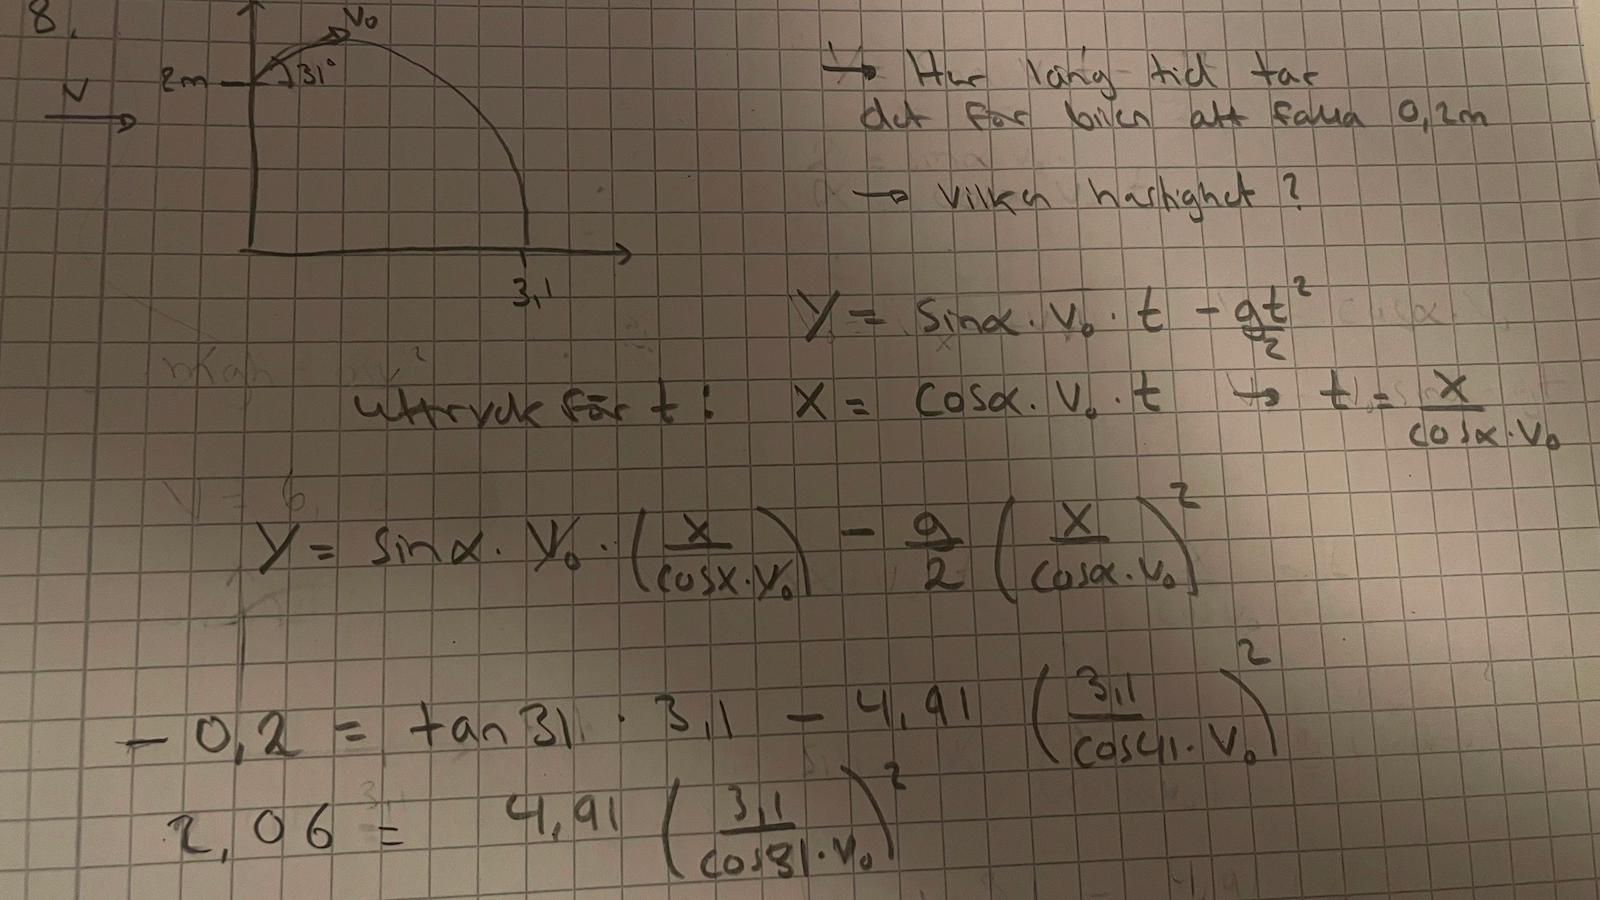 8.
V₀
31°
2m
V
3,1
↳ Hur lång tid tar
det för bilen att falla 0,2m
→ Vilken hastighet?
y = sinα · v₀ · t - gt²/2
uttryck för t: x = cosα · v₀ · t → t = x/(cosα · v₀)
y = sinα · v₀ · (x/(cosx · v₀)) - g/2 (x/(cosα · v₀))²
- 0,2 = tan31 · 3,1 - 4,91 (3,1/(cos41 · v₀))²
2,06 = 4,91 (3,1/(cos31 · v₀))²